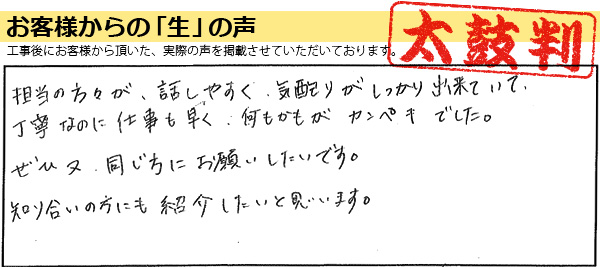 お客様からの「生」の声
工事後にお客様から頂いた、実際の声を掲載させていただいております。
太鼓判
担当の方々が、話しやすく、気配りがしっかり出来ていて、
丁寧なのに仕事も早く、何もかもが カンペキ でした。
ぜひ又、同じ方にお願いしたいです。
知り合いの方にも紹介したいと思います。